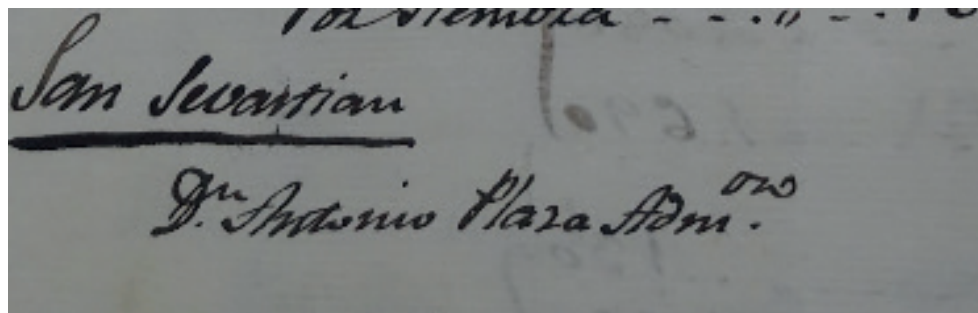 San Sevastian
Dn. Antonio Plaza Adm.or